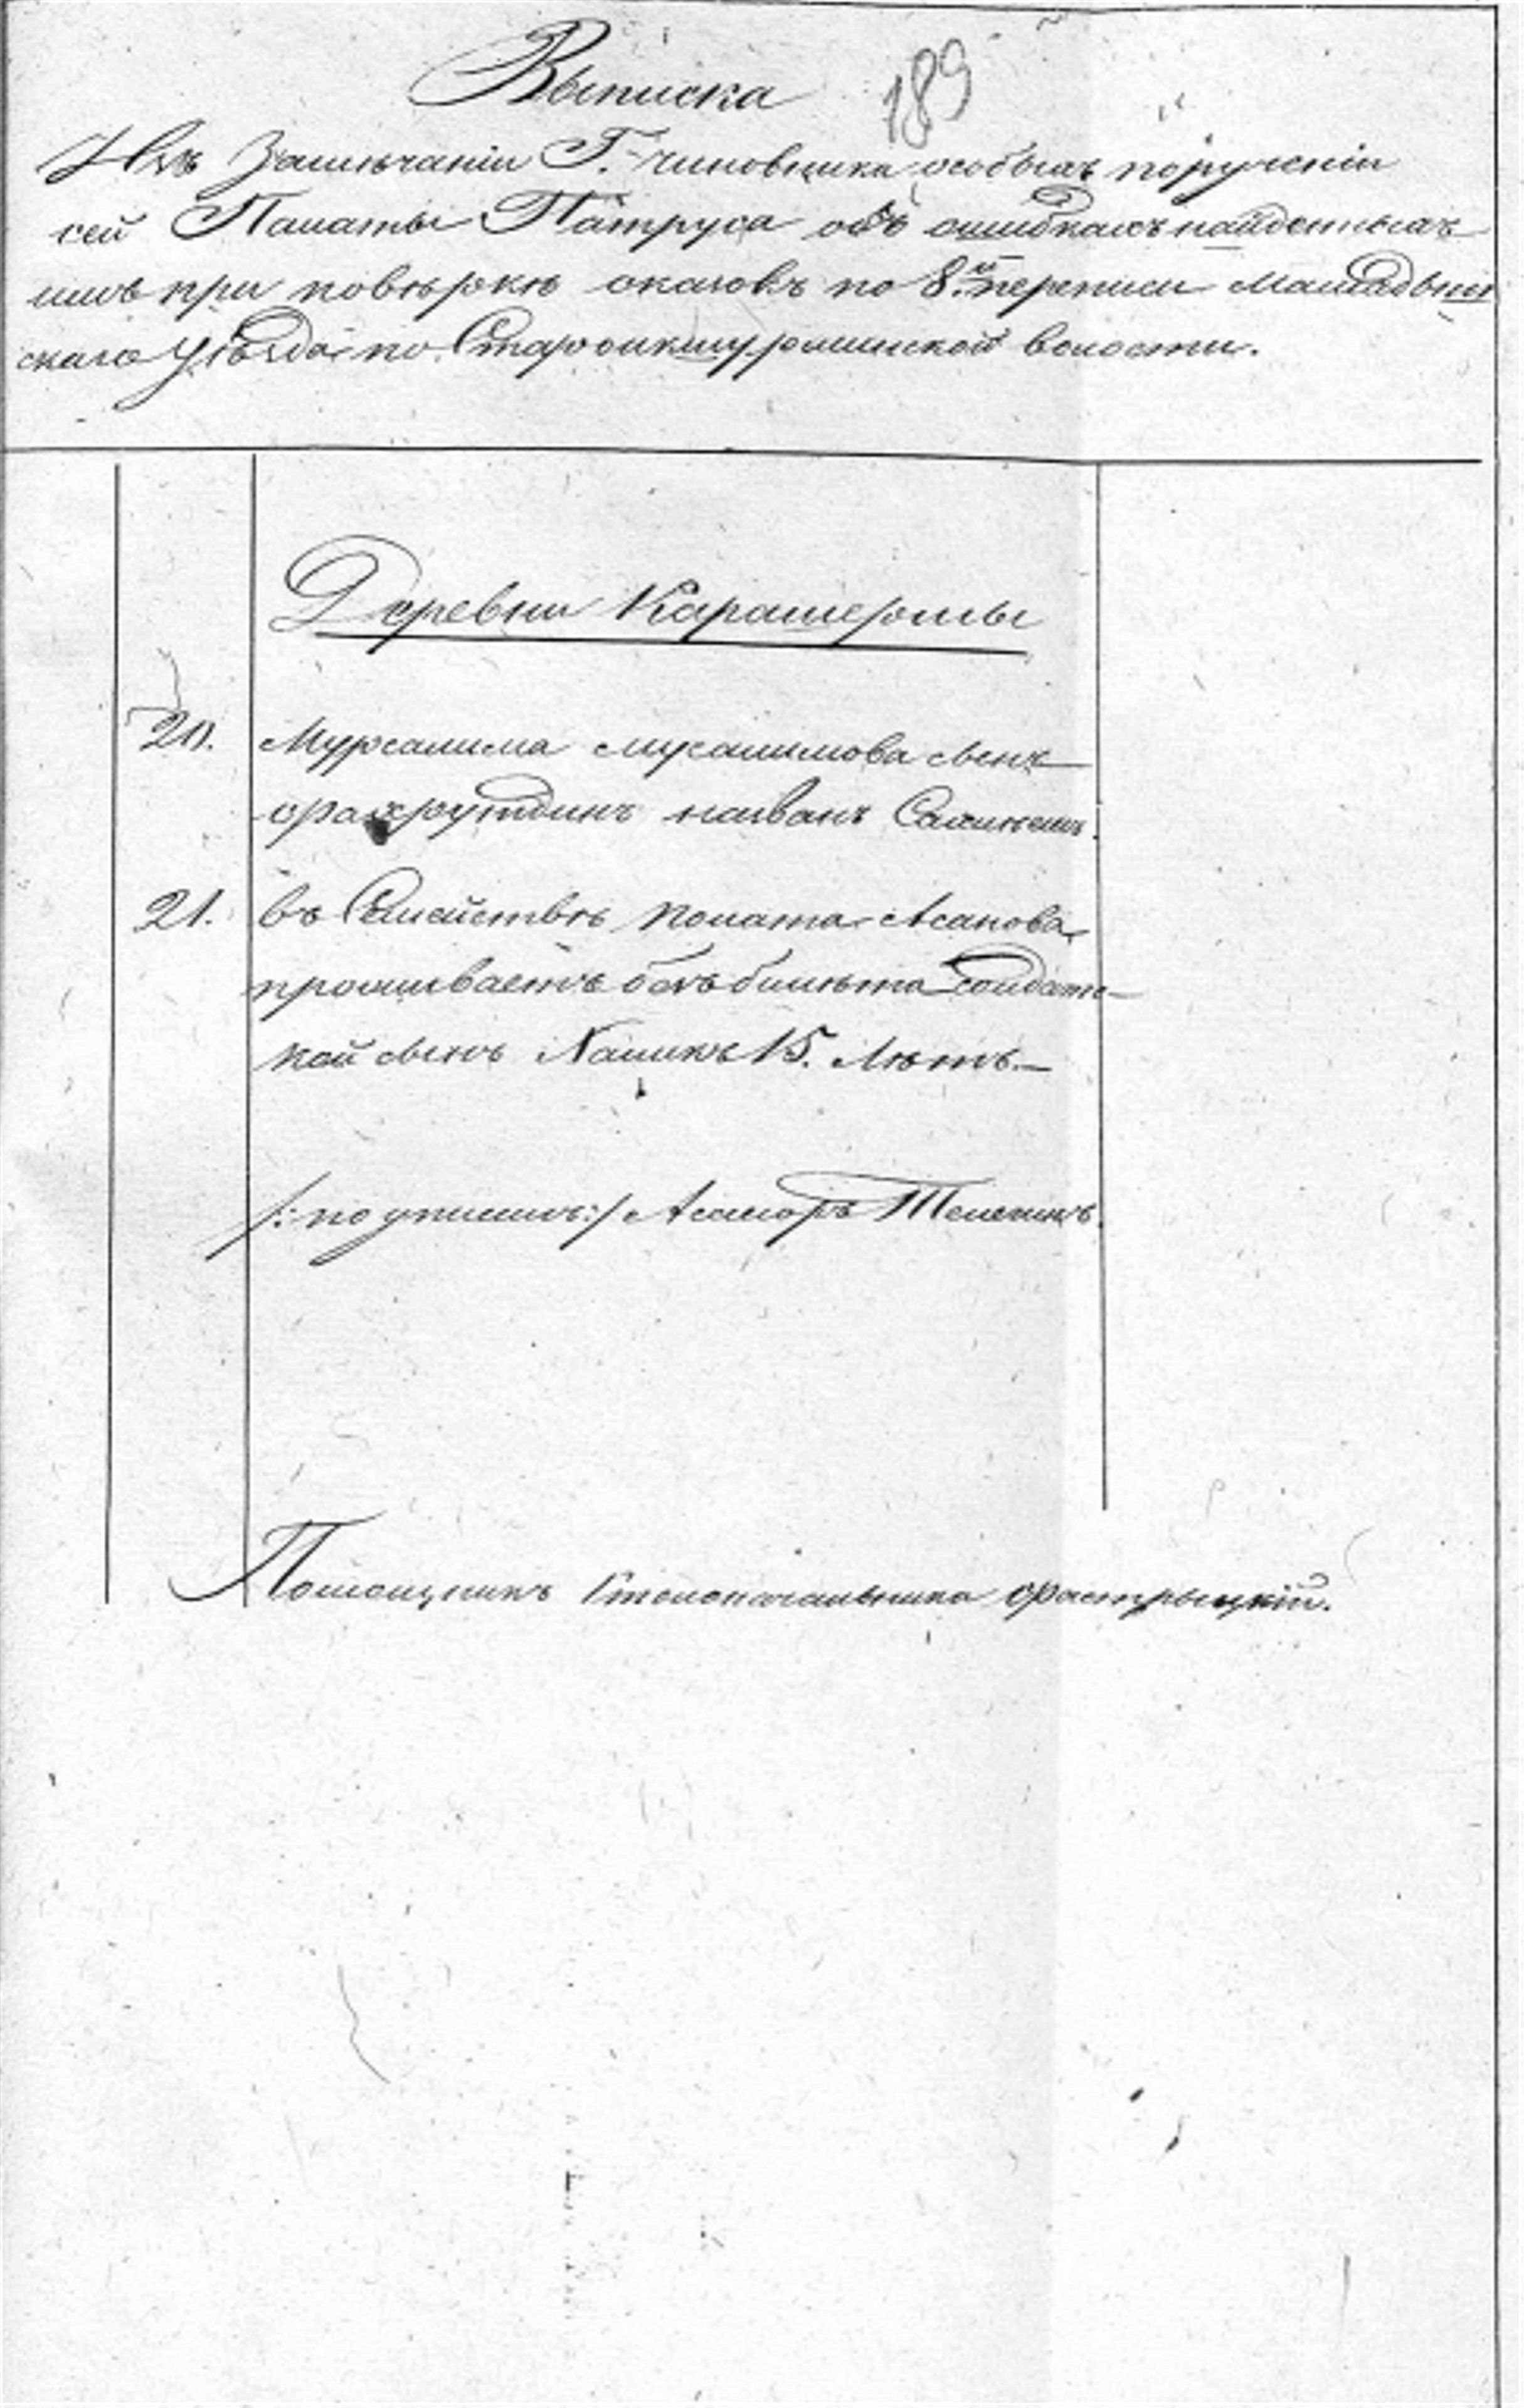 Выписка 189
Изъ Замѣчаніи Г. чиновника особыхъ порученіи
сей Палаты Патруса объ ошибкахъ найденныхъ
имъ при повѣркѣ сказокъ по 8й переписи Малмыж
скаго уѣзда по Староикшурминской волости.
Деревни Карашермы
20. Мурсалима Мусалимова сынъ
Фахрутдинъ названъ
21. въ Семействѣ Полата Асанова
проживаетъ безъ билѣта солдатс-
кой сынъ Халикъ 15. Лѣтъ.—
/: подписалъ:/ Асесоръ Телегинъ.
Помощникъ Столоначальника